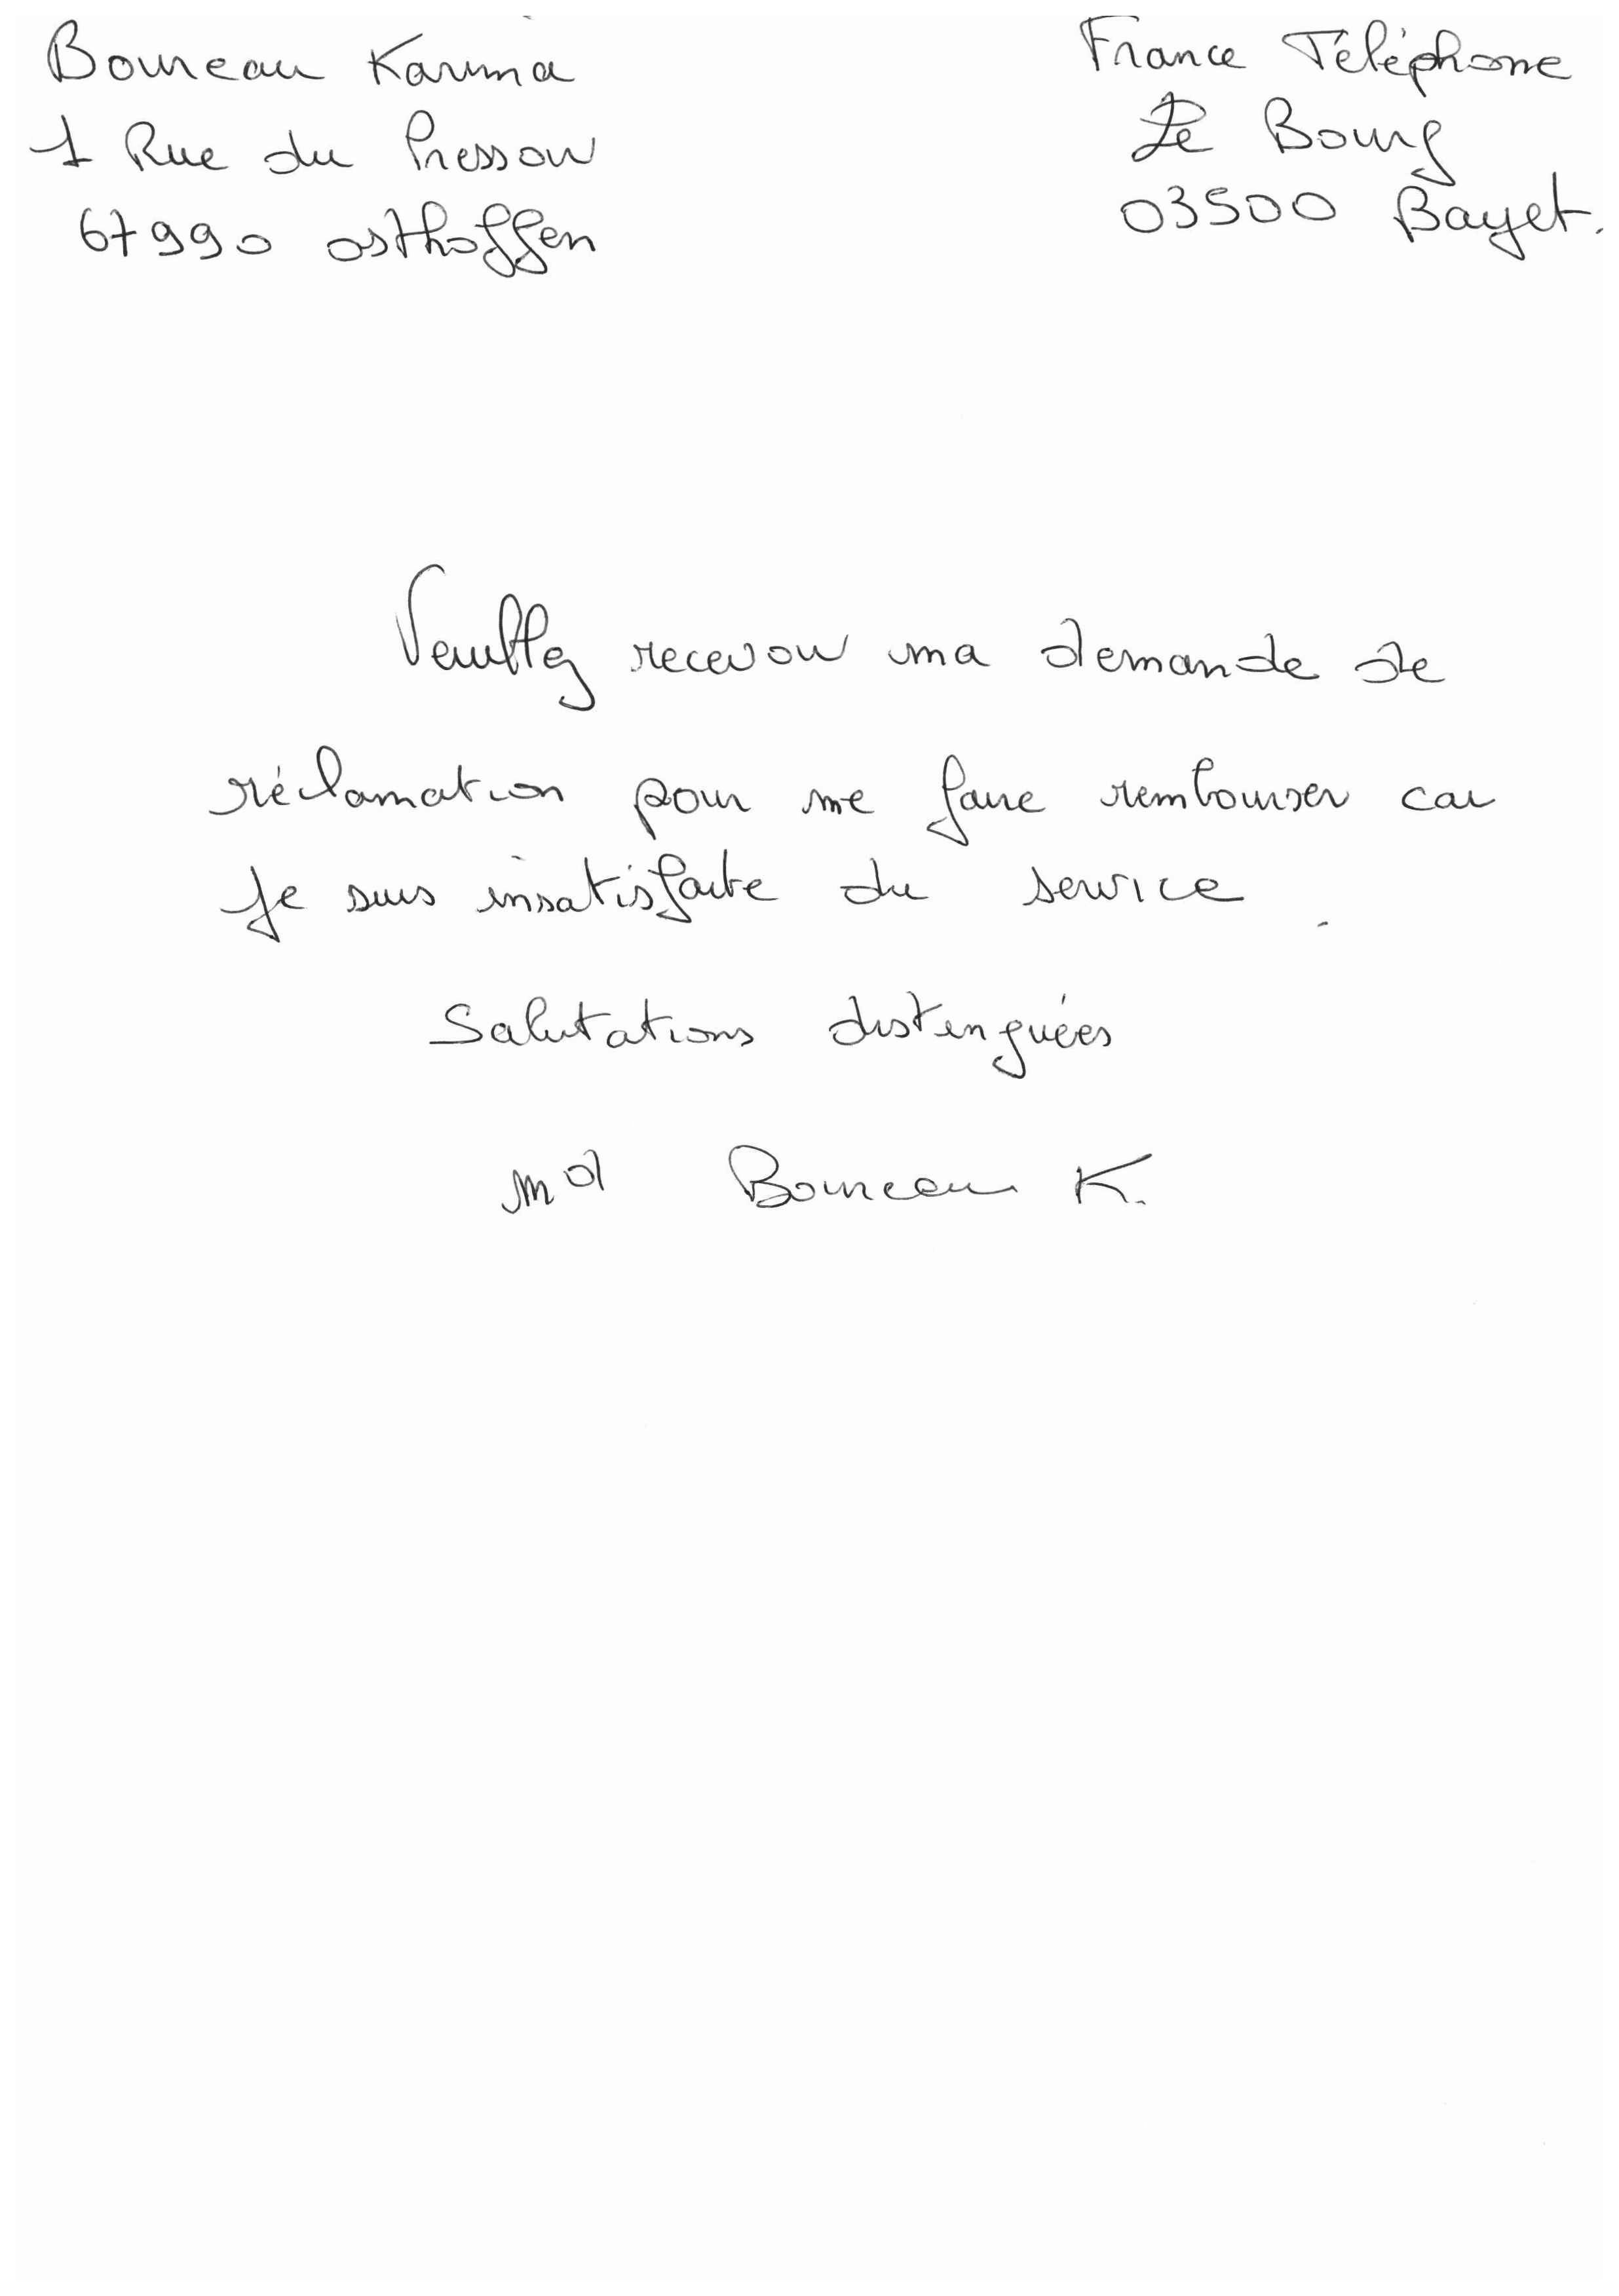 Boureau Karima
1 Rue du Pressoir
67990 osthoffen
France Téléphone
Le Bourg
03500 Bayet.
Veuillez recevoir ma demande de
réclamation pour me faire rembourser car
Je suis insatisfaite du service.
Salutations distinguées
Md Boureau K.